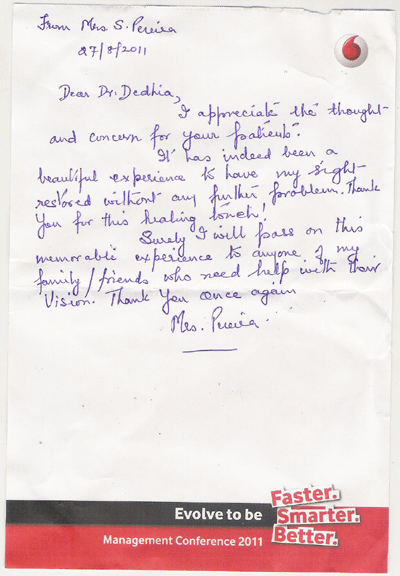 From Mrs S. Pereira
27/8/2011
Dear Dr. Dedhia,
I appreciate the thought
and concern for your patients.
It has indeed been a
beautiful experience to have my sight
restored without any further problem. Thank
You for this healing touch!
Surely I will pass on this
memorable experience to anyone of my
family/friends who need help with their
Vision. Thank You once again
Mrs. Pereira.
Evolve to be
Faster.
Smarter.
Better.
Management Conference 2011